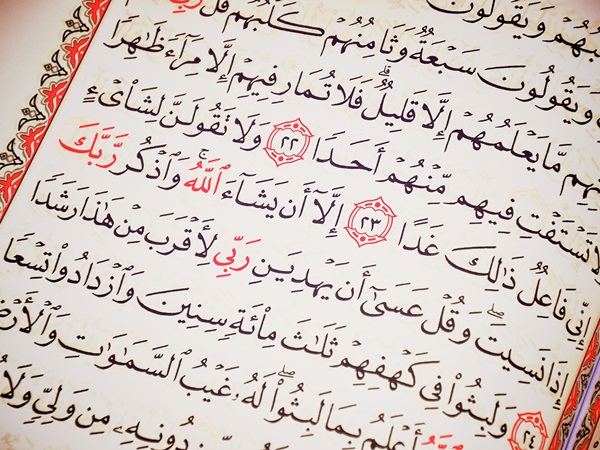 بُهُمْ وَيَقُولُونَ
وَيَقُولُونَ سَبْعَةٌ وَثَامِنُهُمْ كَلْبُهُمْ قُل
مَّا يَعْلَمُهُمْ إِلَّا قَلِيلٌ ۗ فَلَا تُمَارِ فِيهِمْ إِلَّا مِرَآءً ظَٰهِرًا
تَسْتَفْتِ فِيهِم مِّنْهُمْ أَحَدًا ٢٢ وَلَا تَقُولَنَّ لِشَا۟ىْءٍ
إِنِّى فَاعِلٌ ذَٰلِكَ غَدًا ٢٣ إِلَّآ أَن يَشَآءَ ٱللَّهُ ۚ وَٱذْكُر رَّبَّكَ
إِذَا نَسِيتَ ۖ وَقُلْ عَسَىٰٓ أَن يَهْدِيَنِ رَبِّى لِأَقْرَبَ مِنْ هَٰذَا رَشَدًا
٢٤ وَلَبِثُوا۟ فِى كَهْفِهِمْ ثَلَٰثَ مِا۟ئَةٍ سِنِينَ وَٱزْدَادُوا۟ تِسْعًا
أَعْلَمُ بِمَا لَبِثُوا۟ ۖ لَهُۥ غَيْبُ ٱلسَّمَٰوَٰتِ وَٱلْأَرْضِ
دُونِهِۦ مِن وَلِىٍّ وَلَا